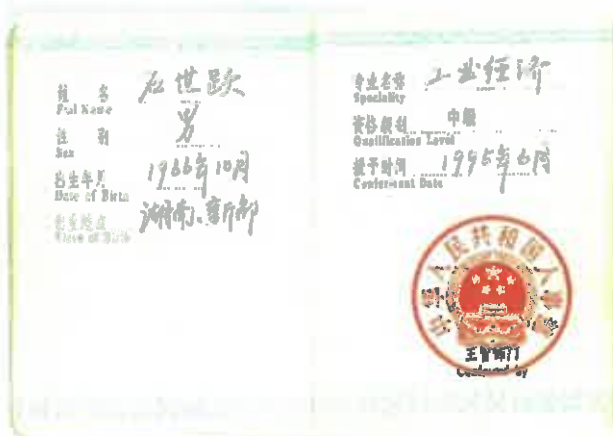 姓 名 石世跃
Full Name
性 别 男
Sex
出生年月 1966年10月
Date of Birth
出生地点 湖南、新邵
Place of Birth
专业名称 工业经济
Speciality
资格级别 中级
Qualification Level
授予时间 1995年6月
Conferment Date
中华人民共和国人事部
Conferred by